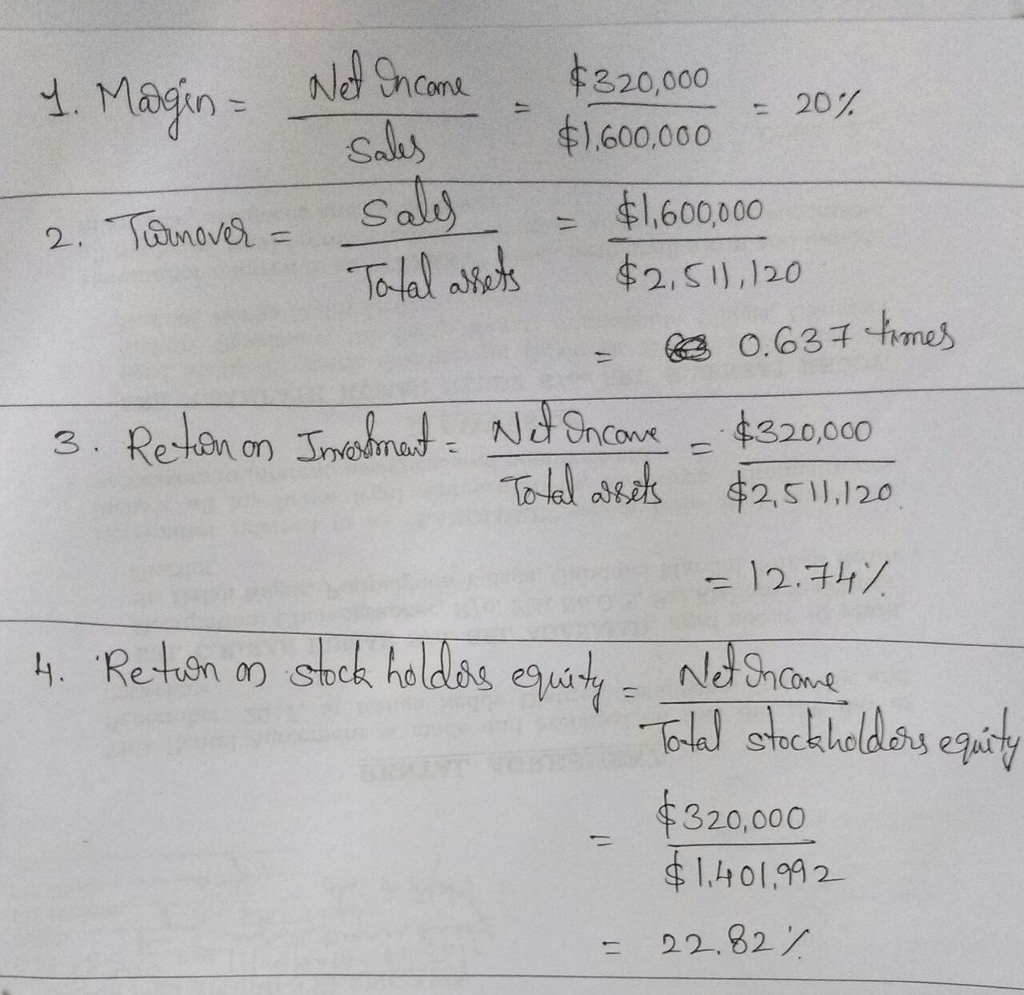 1. Margin = Net Income / Sales = $320,000 / $1,600,000 = 20%
2. Turnover = Sales / Total assets = $1,600,000 / $2,511,120
= 0.637 times
3. Return on Investment = Net Income / Total assets = $320,000 / $2,511,120
= 12.74%
4. Return on stock holders equity = Net Income / Total stockholders equity
= $320,000 / $1,401,992
= 22.82%